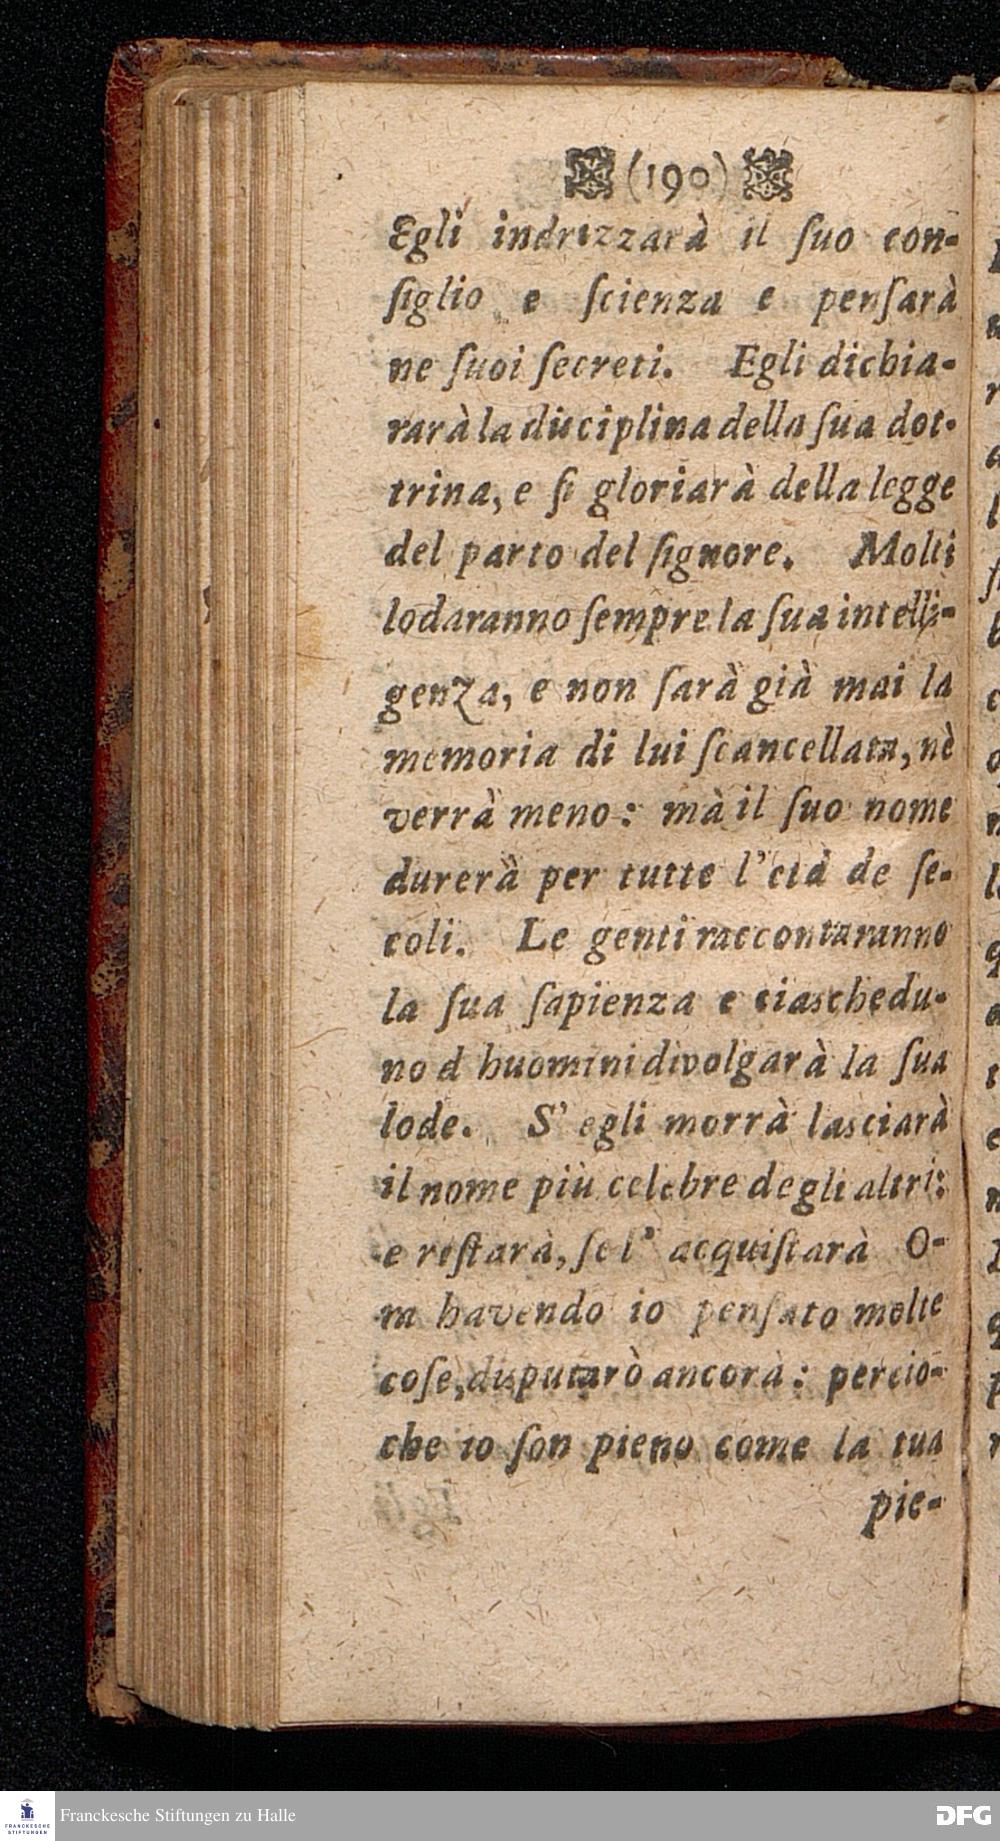 (190)
Egli indrizzarà il ſuo con-
ſiglio e ſcienza e penſarà
ne ſuoi ſecreti. Egli dichia-
rarà la disciplina della ſua dot-
trina, e ſi gloriarà della legge
del parto del ſignore. Molti
lodaranno ſempre la ſua intelli-
genza, e non ſarà già mai la
memoria di lui ſcancellata, nè
verrà meno: mà il ſuo nome
durerà per tutte l'età de ſe-
coli. Le genti raccontaranno
la ſua ſapienza e ciaschedu-
no d huomini divolgarà la ſua
lode. S' egli morrà lasciarà
il nome più celebre degli altri:
e reſtarà, ſe l' acquiſtarà O-
ra havendo io penſato molte
coſe, disputarò ancorà: percio-
che io ſon pieno come la tua
pie-
Franckesche Stiftungen zu Halle
FRANCKESCHE
STIFTUNGEN
DFG